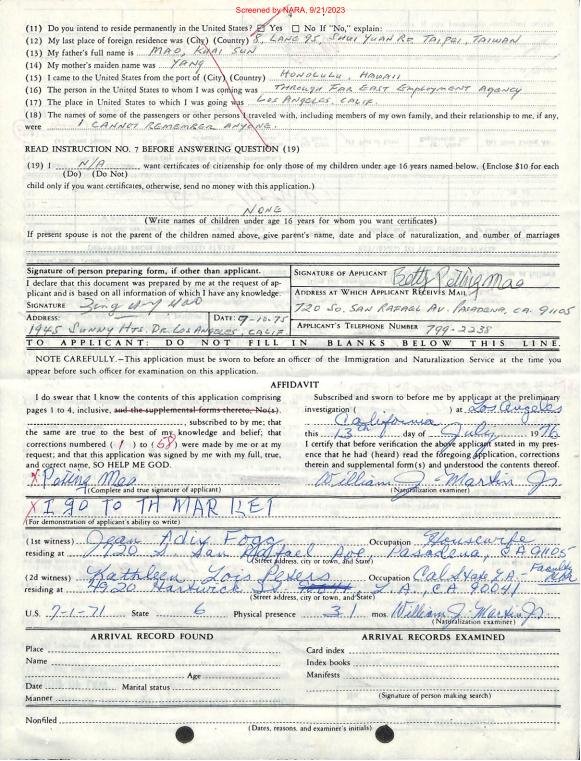 Screened by NARA, 9/21/2023
(11) Do you intend to reside permanently in the United States? ☑ Yes ☐ No If "No," explain:
(12) My last place of foreign residence was (City) (Country) 8, LANE 95, SHUI YUAN RD. TAIPEI, TAIWAN
(13) My father's full name is MAO, KUAI SUN
(14) My mother's maiden name was YANG
(15) I came to the United States from the port of (City) (Country) HONOLULU, HAWAII
(16) The person in the United States to whom I was coming was THROUGH FAR EAST EMPLOYMENT AGENCY
(17) The place in the United States to which I was going was LOS ANGELES, CALIF.
(18) The names of some of the passengers or other persons I traveled with, including members of my own family, and their relationship to me, if any,
were I CANNOT REMEMBER ANYONE.
READ INSTRUCTION NO. 7 BEFORE ANSWERING QUESTION (19)
(19) I N/A want certificates of citizenship for only those of my children under age 16 years named below. (Enclose $10 for each
(Do) (Do Not)
child only if you want certificates, otherwise, send no money with this application.)
NONE
(Write names of children under age 16 years for whom you want certificates)
If present spouse is not the parent of the children named above, give parent's name, date and place of naturalization, and number of marriages
Signature of person preparing form, if other than applicant.
I declare that this document was prepared by me at the request of applicant and is based on all information of which I have any knowledge.
SIGNATURE
ADDRESS: DATE: 7-10-75
1945 SUNNY HTS. DR. LOS ANGELES, CALIF
SIGNATURE OF APPLICANT Betty Petting Mao
ADDRESS AT WHICH APPLICANT RECEIVES MAIL
720 SO. SAN RAFAEL AV. PASADENA, CA. 91105
APPLICANT'S TELEPHONE NUMBER 799-2238
TO APPLICANT: DO NOT FILL IN BLANKS BELOW THIS LINE.
NOTE CAREFULLY.—This application must be sworn to before an officer of the Immigration and Naturalization Service at the time you
appear before such officer for examination on this application.
AFFIDAVIT
I do swear that I know the contents of this application comprising
pages 1 to 4, inclusive, and the supplemental forms thereto, No(s).
, subscribed to by me; that
the same are true to the best of my knowledge and belief; that
corrections numbered (1) to (58) were made by me or at my
request; and that this application was signed by me with my full, true,
and correct name, SO HELP ME GOD.
X Petting Mao
(Complete and true signature of applicant)
Subscribed and sworn to before me by applicant at the preliminary
investigation ( ) at Los Angeles
California
this 13th day of July, 1976
I certify that before verification the above applicant stated in my presence that he had (heard) read the foregoing application, corrections
therein and supplemental form(s) and understood the contents thereof.
William J. Martin Jr
(Naturalization examiner)
X I GO TO TH MARKET
(For demonstration of applicant's ability to write)
(1st witness) Jean Adix Fogg Occupation Housewife
residing at 720 S. San Rafael Ave, Pasadena, CA 91105
(Street address, city or town, and State)
(2d witness) Kathleen Lois Peters Occupation Cal State L.A. - Faculty
residing at 4920 L.A., CA 90041
(Street address, city or town, and State)
U.S. 7-1-71 State 6 Physical presence 31 mos. William J. Martin Jr
(Naturalization examiner)
ARRIVAL RECORD FOUND
Place
Name
Age
Date Marital status
Manner
ARRIVAL RECORDS EXAMINED
Card index
Index books
Manifests
(Signature of person making search)
Nonfiled
(Dates, reasons, and examiner's initials)